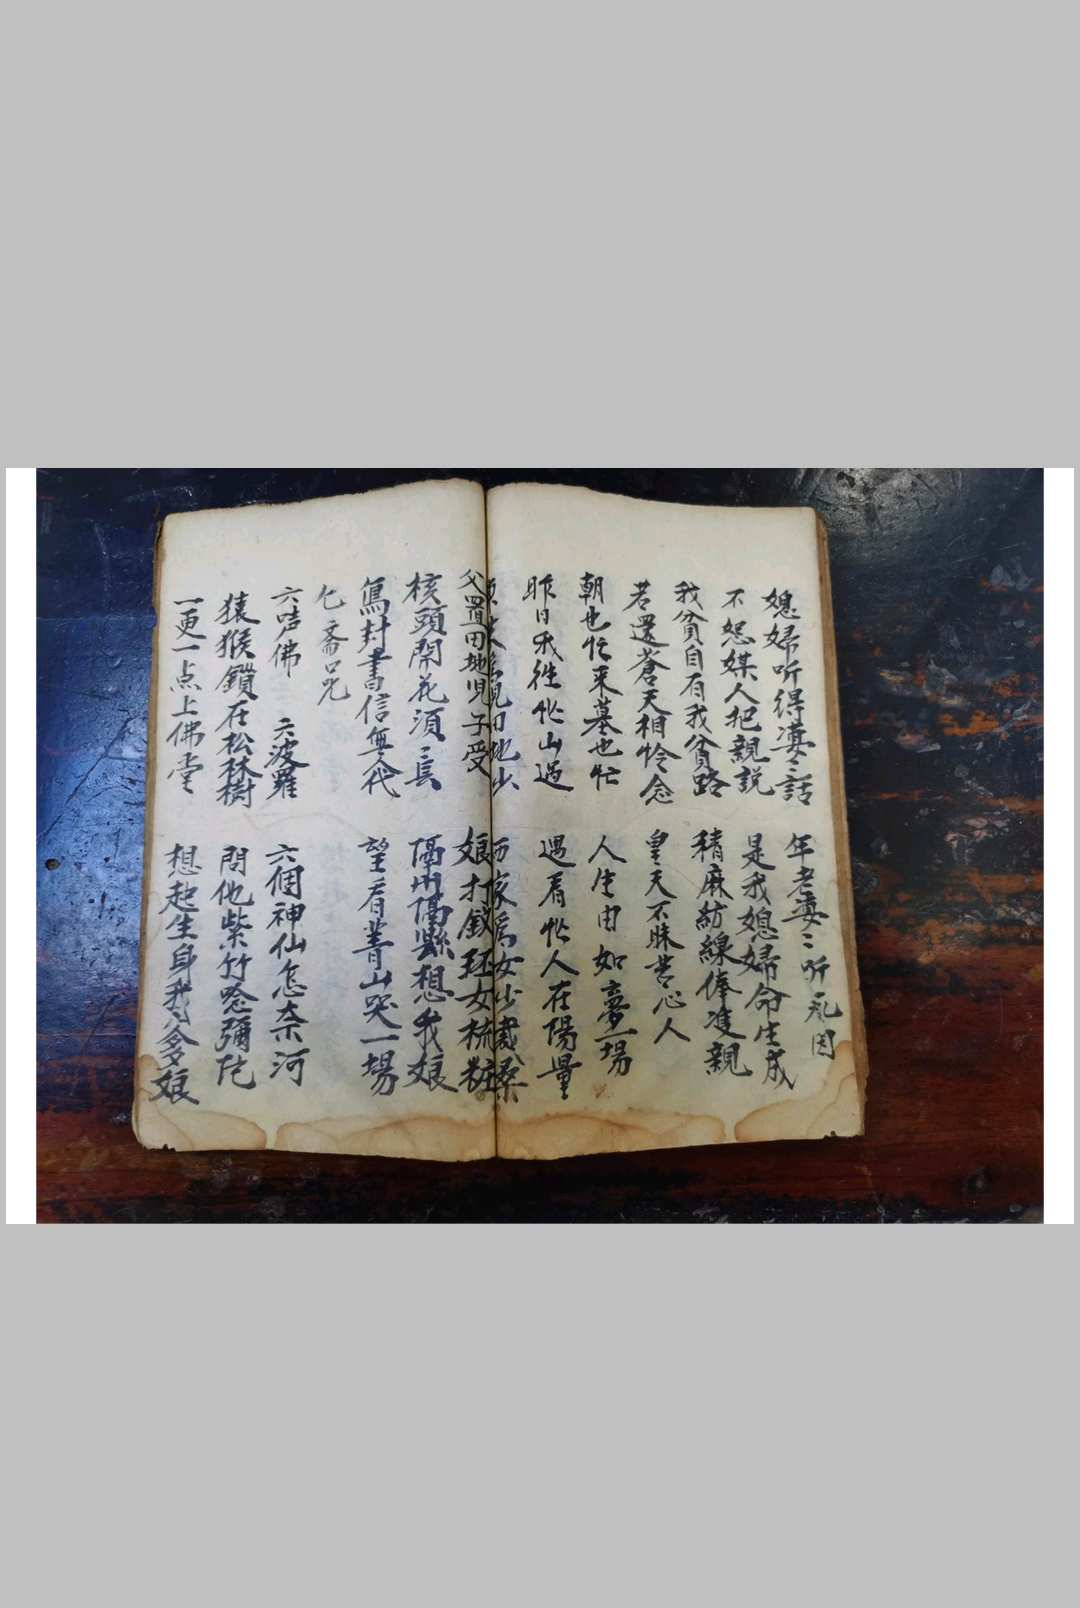 媳婦听得婆〻話 年老婆〻听亂因
不怨媒人把親説 是我媳婦命生成
我貧自有我貧路 積麻紡線俸双親
若還蒼天相怜念 皇天不昧苦心人
朝也忙来墓也忙 人生由如夢一場
昨日我徃忙山過 遇看忙人在陽量
父置田地児子受 娘打釵珏女梳粧
核頭開花須〻長 隔州隔縣想我娘
寫封書信無人代 望看菁山哭一塲
乞斋咒
六咭佛 六波羅 六個神仙怎奈河
猿猴鎖在松林樹 問他紫竹唸彌陀
一更一点上佛堂 想起生身我爹娘